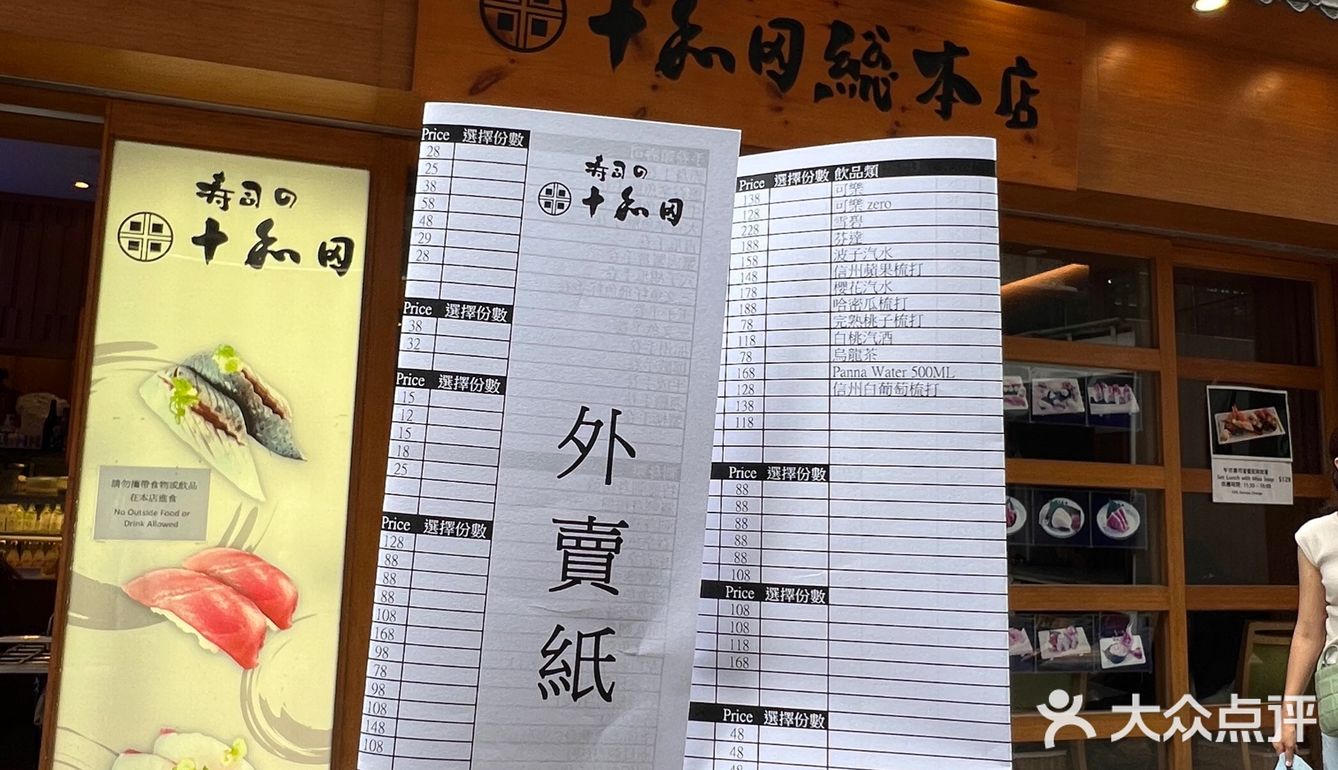 十和田総本店
寿司の
十和田
請勿攜帶食物或飲品
在本店進食
No Outside Food or
Drink Allowed
Price 選擇份數
28
25
38
58
48
29
28
Price 選擇份數
38
32
Price 選擇份數
15
12
15
18
25
Price 選擇份數
128
88
88
88
108
168
98
78
98
108
148
108
寿司の
十和田
外
賣
紙
Price 選擇份數 飲品類
138 可樂
128 可樂 zero
228 雪碧
188 芬達
158 波子汽水
148 信州蘋果梳打
178 櫻花汽水
188 哈密瓜梳打
78 完熟桃子梳打
118 白桃汽酒
78 烏龍茶
168 Panna Water 500ML
128 信州白葡萄梳打
138
118
Price 選擇份數
88
88
88
88
88
108
Price 選擇份數
108
108
118
168
Price 選擇份數
48
48
48
Set Lunch with Miso Soup $128
大众点评